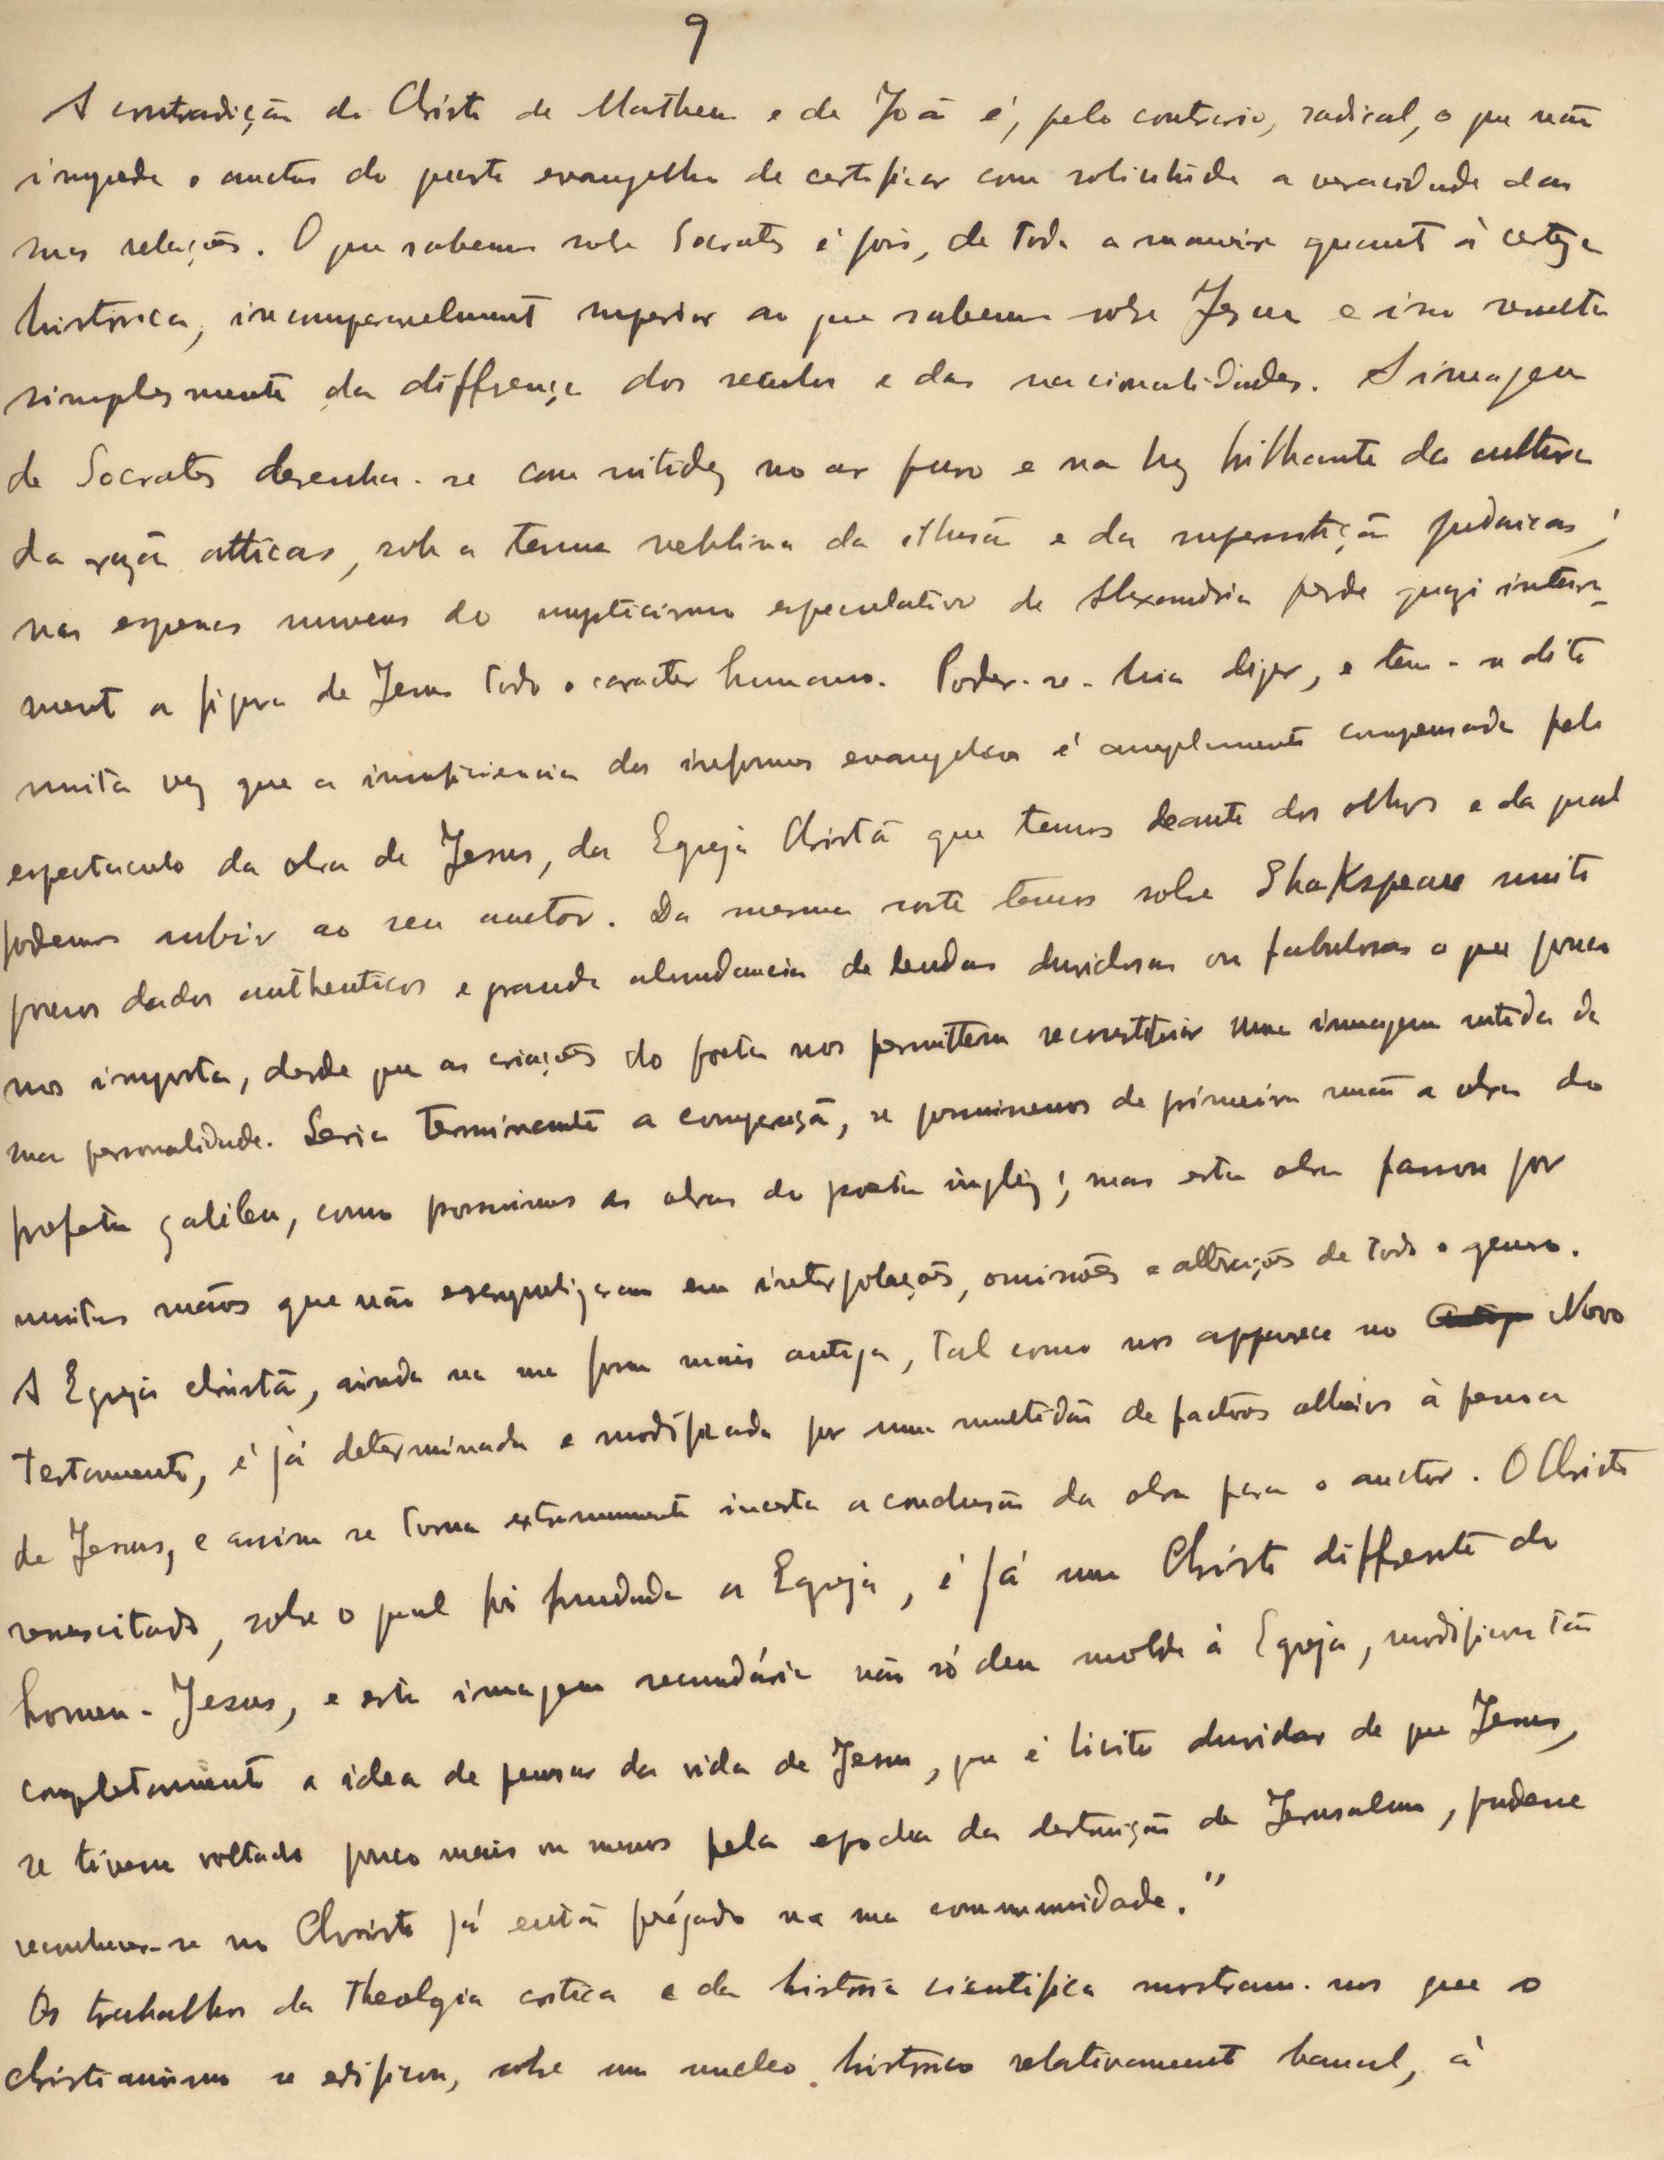 9
A contradição do Christo de Matheus e de João é, pelo contrario, radical, o que não
impede o auctor do quarto evangelho de certificar com solicitude a veracidade das
suas relações. O que sabemos sobre Socrates é pois, de toda a maneira quanto à certeza
historica, incomparavelmente superior ao que sabemos sobre Jesus e isso resulta
simplesmente da differença dos seculos e das nacionalidades. A imagem
de Socrates desenha-se com nitidez no ar puro e na luz brilhante da cultura
da razão atticas, sob a tenue neblina da illusão e da superstição judaicas;
nas espessas nuvens do mysticismo especulativo de Alexandria perde quazi inteira-
mente a figura de Jesus todo o caracter humano. Poder-se-hia dizer, e tem-se dito
muita vez que a insuficiencia dos informes evangelicos é amplamente compensada pelo
espectaculo da obra de Jesus, da Egreja Christã que temos deante dos olhos e da qual
podemos subir ao seu auctor. Da mesma sorte temos sobre Shakspeare muito
poucos dados authenticos e grande abundancia de lendas duvidosas ou fabulosas o que pouco
nos importa, desde que as criações do poeta nos permittem reconstituir uma imagem nitida da
sua personalidade. Seria terminante a comparação, se possuissemos de primeira mão a obra do
profeta galileu, como possuimos as obras do poeta inglez; mas esta obra passou por
muitas mãos que não escrupulizaram em interpolações, omissões e alterações de todo o genero.
A Egreja christã, ainda na sua forma mais antiga, tal como nos apparece no Novo
Testamento, é já determinada e modificada por uma multidão de factores alheios à pessoa
de Jesus, e assim se torna extremamente incerta a conclusão da obra para o auctor. O Christo
ressuscitado, sobre o qual foi fundada a Egreja, é já um Christo differente do
homem-Jesus, e esta imagem secundária não só deu molde à Egreja, modificou tão
completamente a idea de pensar da vida de Jesus, que é licito duvidar de que Jesus,
se tivesse voltado pouco mais ou menos pela epocha da destruição de Jerusalem, pudesse
reconhecer-se no Christo já então prégado na sua communidade."
Os trabalhos da Theologia critica e da historia cientifica mostram-nos que o
christianismo se edificou, sobre um nucleo historico relativamente banal, à